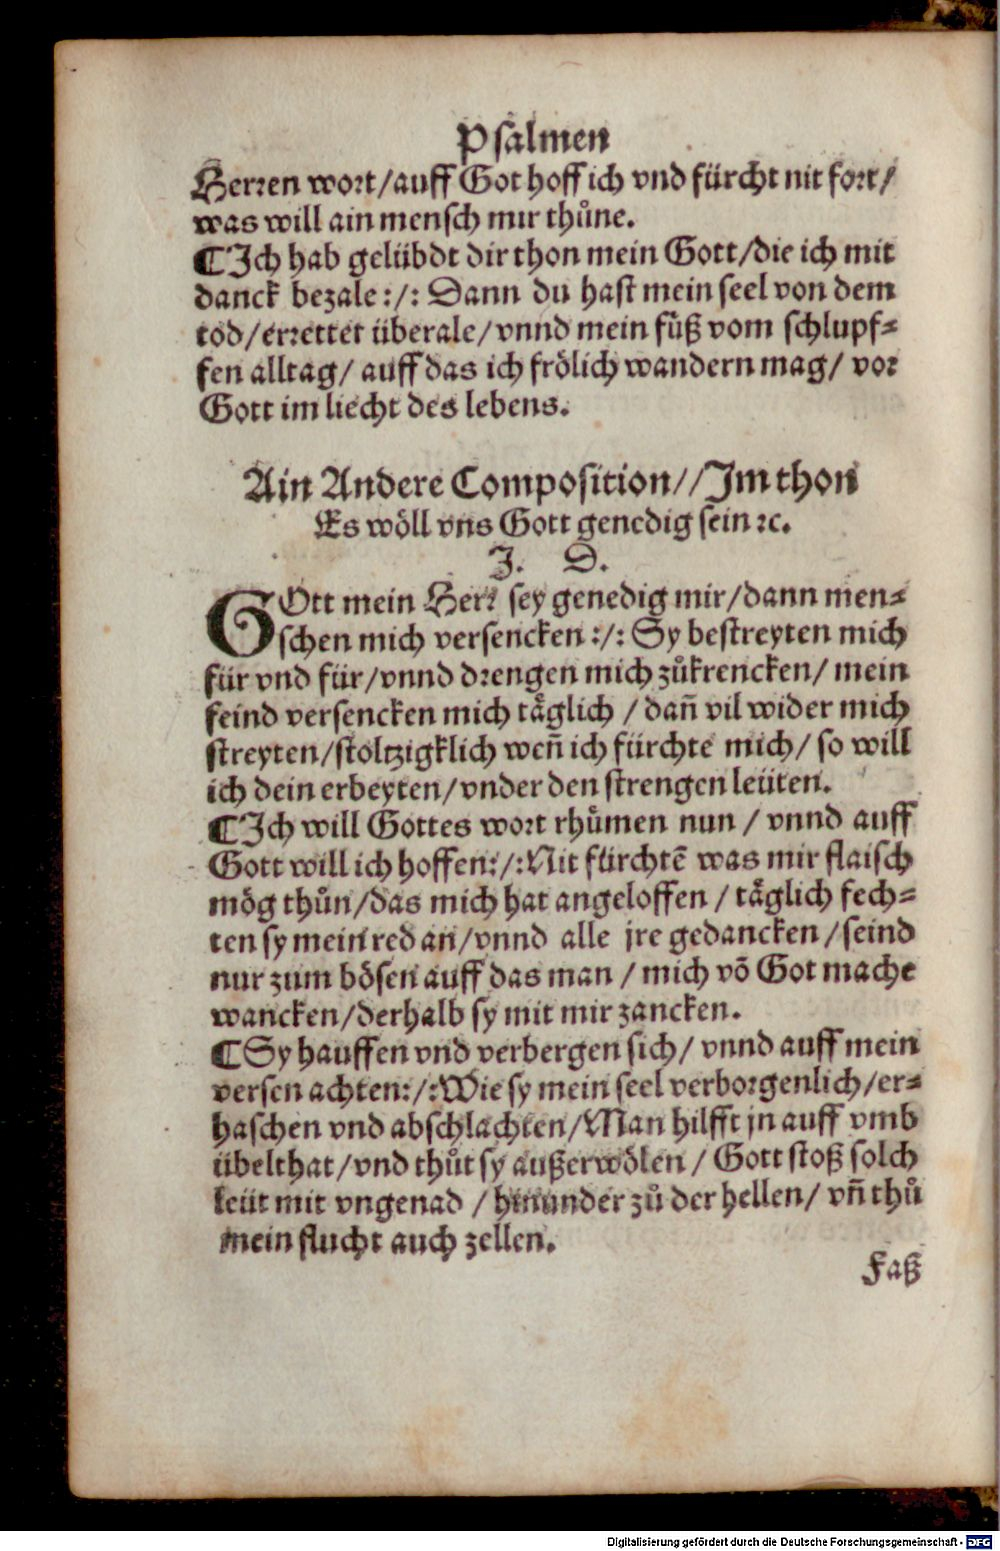 Psalmen
Herren wort/auff Got hoff ich vnd fürcht nit fort/
was will ain mensch mir thůne.
¶Ich hab gelübdt dir thon mein Gott/die ich mit
danck bezale:/: Dann du hast mein seel von dem
tod/errettet überale/vnnd mein fůß vom schlupf⸗
fen alltag/ auff das ich frölich wandern mag/ vor
Gott im liecht des lebens.
Ain Andere Composition//Im thon
Es wöll vns Gott genedig sein ꝛc.
J. D.
GOtt mein Herr sey genedig mir/dann men⸗
schen mich versencken:/: Sy bestreyten mich
für vnd für/vnnd drengen mich zůkrencken/ mein
feind versencken mich täglich / dañ vil wider mich
streyten/stoltzigklich weñ ich fürchte mich/ so will
ich dein erbeyten/vnder den strengen leüten.
¶Ich will Gottes wort rhůmen nun / vnnd auff
Gott will ich hoffen:/:Nit fürchtē was mir flaisch
mög thůn/das mich hat angeloffen / täglich fech⸗
ten sy mein red an/vnnd alle jre gedancken /seind
nur zum bösen auff das man / mich võ Got mache
wancken/derhalb sy mit mir zancken.
¶Sy hauffen vnd verbergen sich/ vnnd auff mein
versen achten:/:Wie sy mein seel verborgenlich/er⸗
haschen vnd abschlachten/Man hilfft jn auff vmb
übelthat/vnd thůt sy außerwölen / Gott stoß solch
leüt mit vngenad / hinunder zů der hellen/ vñ thů
mein flucht auch zellen.
Faß
Digitalisierung gefördert durch die Deutsche Forschungsgemeinschaft - DFG